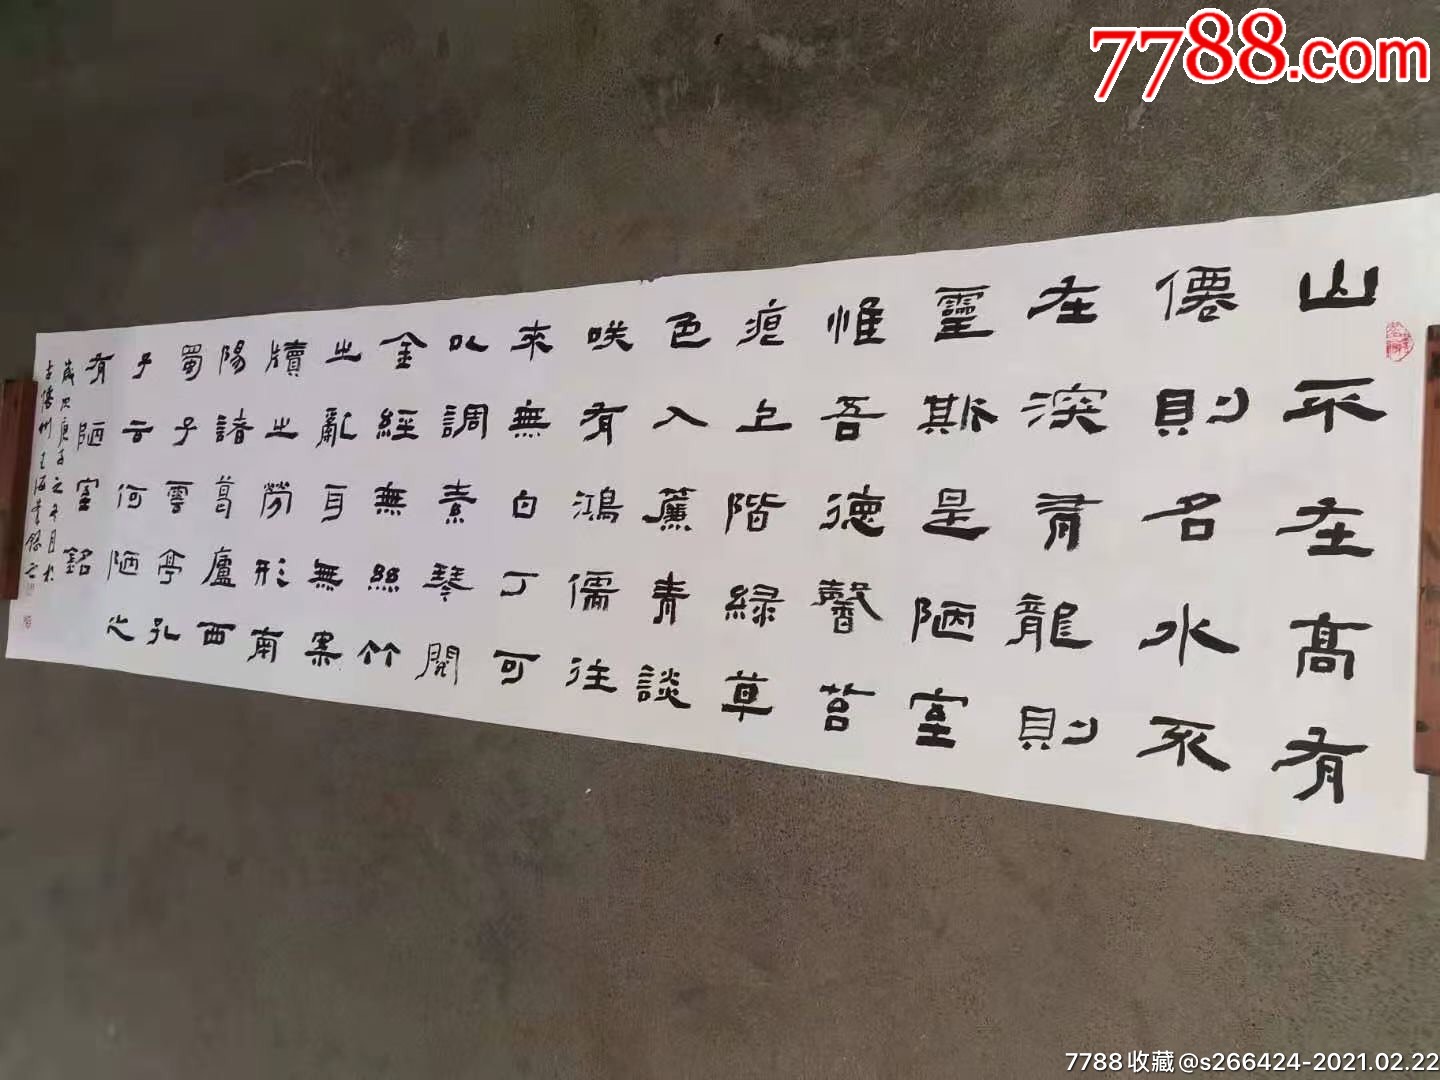 7788.com
山不在高有
僊則名水不
在深有龍則
靈斯是陋室
惟吾德馨苔
痕上階綠草
色入簾青談
咲有鴻儒往
來無白丁可
以調素琴閱
金經無絲竹
之亂耳無案
牘之勞形南
陽諸葛廬西
蜀子雲亭孔
子云何陋之
有陋室銘
歲次庚子之月於
州王海書
7788收藏@s266424-2021.02.22